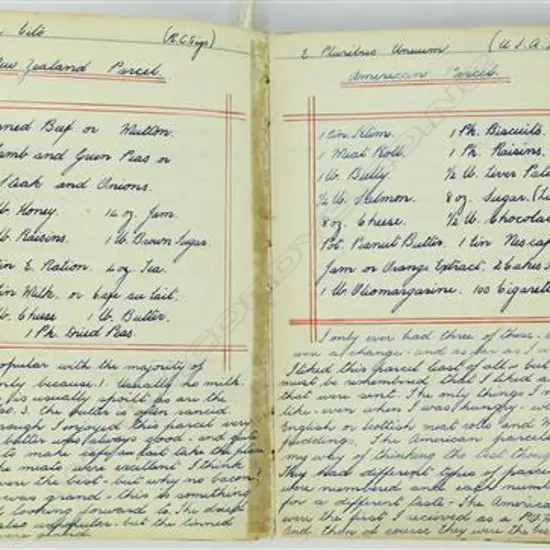 Cito (R.C. Sigs)
New Zealand Parcel.
Beef or Mutton.
Lamb and Green Peas or
Steak and Onions.
lb. Honey. 14 oz. Jam.
lb. Raisins. 1 lb. Brown Sugar.
tin E. Ration. 4 oz. Tea
tin Milk. or Cafe au lait.
lb. Cheese 1 lb. Butter.
1 Pk. Dried Peas.
popular with the majority of
only because. 1. Usually no milk.
is usually spoilt as are the
3. the butter is often rancid.
I enjoyed this parcel very
butter was always good - and quite
to make cafe au lait take the place
the meats were excellent I think
were the best - but why no bacon?
was grand - this is something
looking forward to. The dried
also popular - but the tinned
were good.
E Pluribus Unuum (U.S.A.
American Parcel.
1 tin Klim. 1 Pk. Biscuits.
1 Meat Roll. 1 Pk. Raisins.
1 lb. Bully. ½ lb. Liver Pate
½ lb. Salmon. 8 oz. Sugar.
8 oz. Cheese. ½ lb. Chocolate
Pot. Peanut Butter. 1 tin Nescafe
Jam or Orange Extract. 2 Cakes
1 lb. Oliomargarine. 100 Cigarettes
I only ever had three of these -
were a change - and as far as I
I liked this parcel least of all - but
must be remembered that I liked
that were sent. The only things I
like - even when I was hungry -
English or Scottish meat rolls and
puddings. The American parcels
my way of thinking the best thought
They had different types of parcels
were numbered and each number
for a different taste - The American
were the first I recieved as a
and then of course they were the best